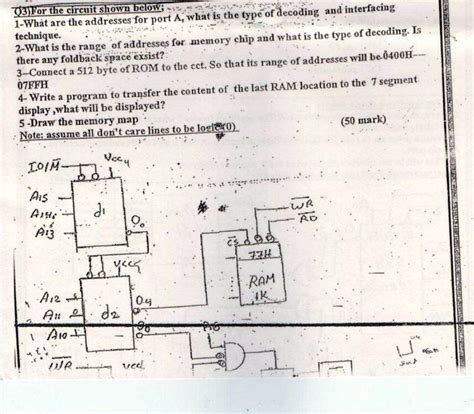 Q3)For the circuit shown below:
1-What are the addresses for port A, what is the type of decoding and interfacing
technique.
2-What is the range of addresses for memory chip and what is the type of decoding. Is
there any foldback space exsist?
3-Connect a 512 byte of ROM to the cct. So that its range of addresses will be 0400H-
07FFH
4- Write a program to transfer the content of the last RAM location to the 7 segment
display ,what will be displayed?
5 -Draw the memory map (50 mark)
Note: assume all don't care lines to be logic(0)
IO/M̅ Vcc
A15
A14
A13 d1 O0
W̅R̅
R̅D̅
C̅S̅
77H
RAM
1K
Vcc
A12
A11 d2 O4
A10 O0
W̅R̅ vcc